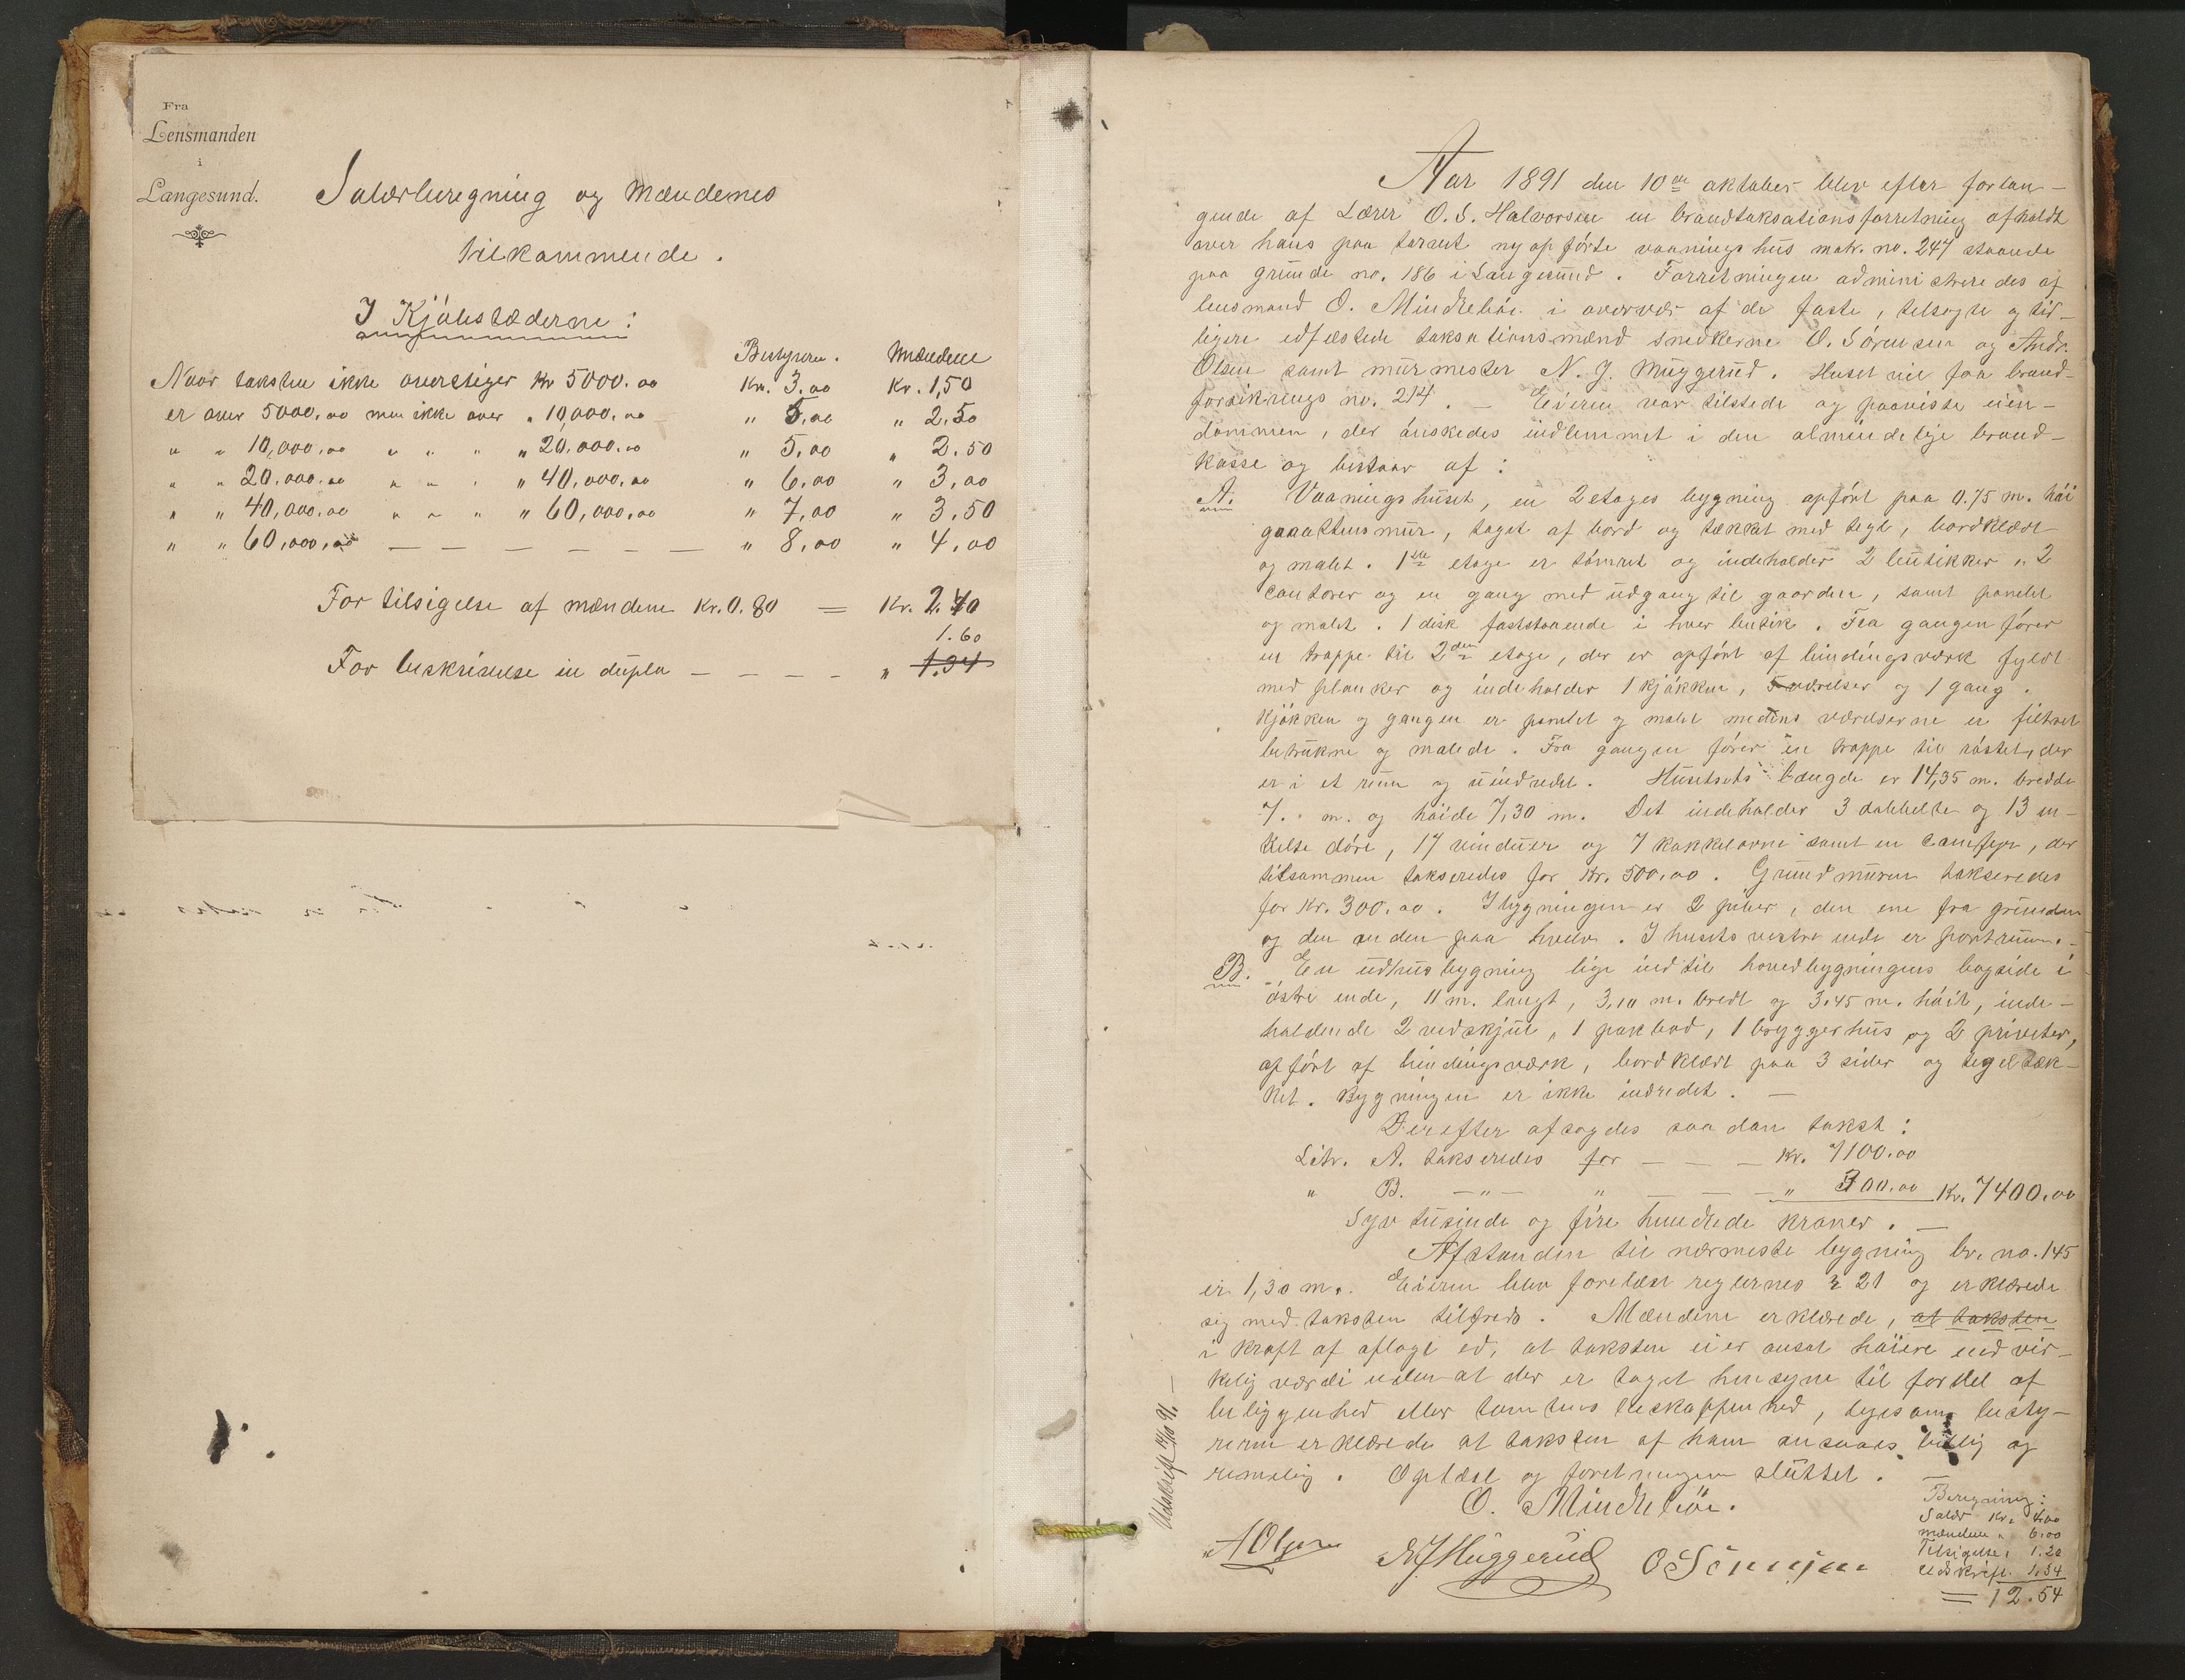 Fra
Lensmanden
i
Langesund.
Salærberegning og mændenes
tilkommende.
I Kjøbstæderne:
Bestyreren. Mændene
Naar taksten ikke overstiger Kr 5000.00 Kr. 3.00 Kr. 1,50
er over 5000,00 men ikke over " 10,000.00 " 5.00 " 2.50
" " 10,000,00 " " " " 20.000.00 " 5,00 " 2.50
" " 20.000.00 " " " " 40,000,00 " 6,00 " 3,00
" " 40,000,00 " " " " 60,000,00 " 7,00 " 3,50
" " 60,000,00 — — — — — — " 8,00 " 4,00
For tilsigelse af mændene Kr. 0.80 = Kr. 2.40
1.60
For beskrivelse in duplo — — — — " 1.34
Aar 1891 den 10de oktober blev efter forlan-
gende af Lærer O. S. Halvorsen en brandtaksationsforretning afholdt
over hans paa torvet nyopførte vaaningshus matr. no. 247 staaende
paa grunde no. 186 i Langesund. Forretningen administreredes af
lensmand O. Mindrebøe i overvær af de faste, tilsagte og tid-
ligere edfæstede taksationsmænd snedkerne O. Sørensen og Andr.
Olsen samt murmester N. J. Muggerud. Huset vil faa brand-
forsikrings no. 214. — Eieren var tilstede og paaviste eien-
dommen, der ønskedes indlemmet i den almindelige brand-
kasse og bestaar af:
A. Vaaningshuset, en 2 etages bygning opført paa 0.75 m. høi
graastensmur, taget af bord og tækket med tegl, bordklædt
og malet. 1ste etage er tømret og indeholder 2 butikker, 2
contorer og en gang med udgang til gaarden, samt panelet
og malet. 1 disk faststaaende i hver butik. Fra gangen fører
en trappe til 2den etage, der er opført af bindingsværk fyldt
med planker og indeholder 1 kjøkken, 5 værelser og 1 gang.
Kjøkken og gangen er panelet og malet medens værelserne er filtret
betrukne og malede. Fra gangen fører en trappe til røstet, der
er i et rum og uindredet. Husets længde er 14,35 m. bredde
7. " m. og høide 7,30 m. Det indeholder 3 dobbelte og 13 en-
kelte døre, 17 vinduer og 7 kakkelovne samt en comfyr, der
tilsammen takseredes for Kr. 500,00. Grundmuren takseredes
for Kr. 300.00. I bygningen er 2 piber, den ene fra grunden
og den anden paa hvelv. I husets vestre ende er portrum. -
B. En udhusbygning lige ind til hovedbygningens bagside i
østre ende, 11 m. langt, 3,10 m. bredt og 3.45 m. høit, inde-
holdende 2 vedskjul, 1 pakbod, 1 bryggerhus og 2 priveter,
opført af bindingsværk, bordklædt paa 3 sider og tegeltæk-
ket. Bygningen er ikke indredet. —
Derefter afsagdes saadan takst:
Litr. A. takseredes for — — — Kr. 7100.00
" B. —"— " — — — " 300,00 Kr. 7400,00
Syv tusinde og fire hundrede kroner. —
Afstanden til nærmeste bygning br. no. 145
er 1,30 m. Eieren blev forelæst reglernes § 21 og erklærede
sig med taksten tilfreds. Mændene erklærede, at taksten
i kraft af aflagt ed, at taksten ei er ansat høiere end vir-
kelig værdi uden at der er taget hensyn til fordel af
beliggenhed eller tomtens beskaffenhed, ligesom besty-
reren erklærede at taksten af ham ansaaes billig og
rimelig. Oplæst og forretningen sluttet.
O. Mindrebøe.
A Olsen NJ Muggerud O Sørensen
Udskrift 14/10 91. —
Beregning:
Salær Kr. 4.00
mændene " 6.00
Tilsigelse, 1.20
Udskrift. 1.34
= 12.54